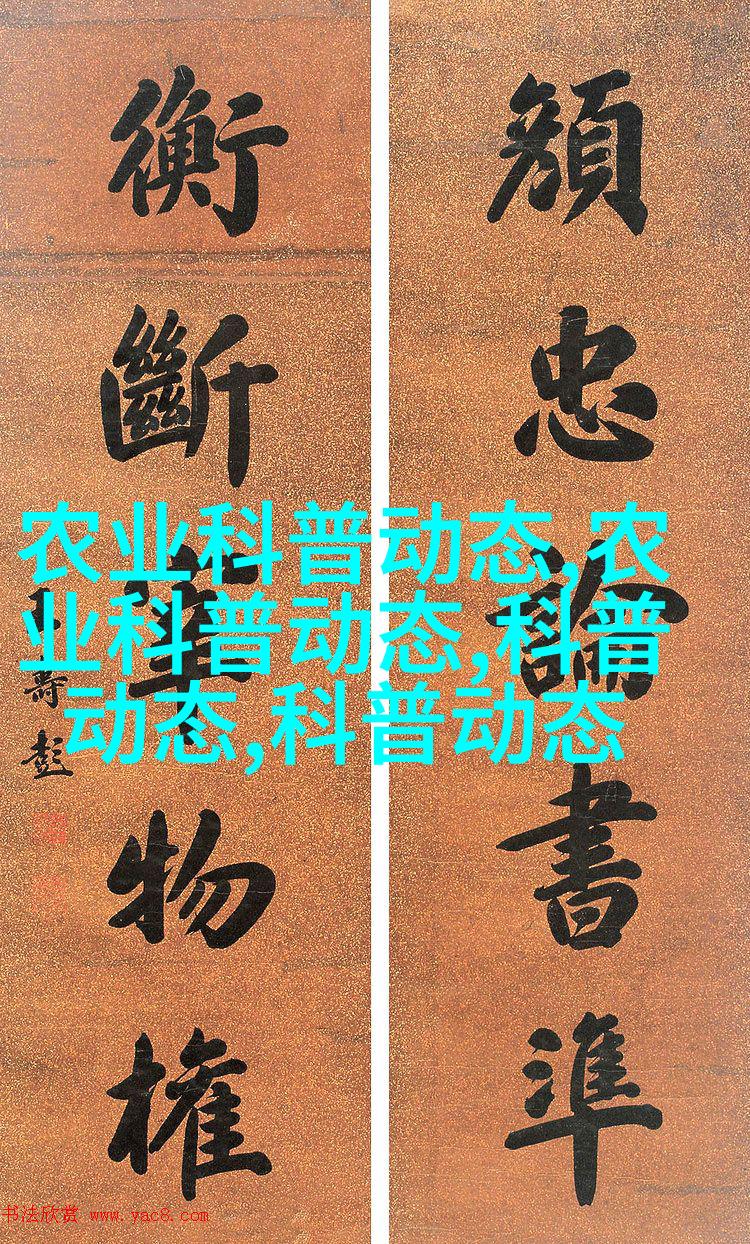 顏忠論書準
衡斷物權
王壽彭
农业科普动态,农
业科普动态,科普
动态,科普动态
书法欣赏 www.yac8.com